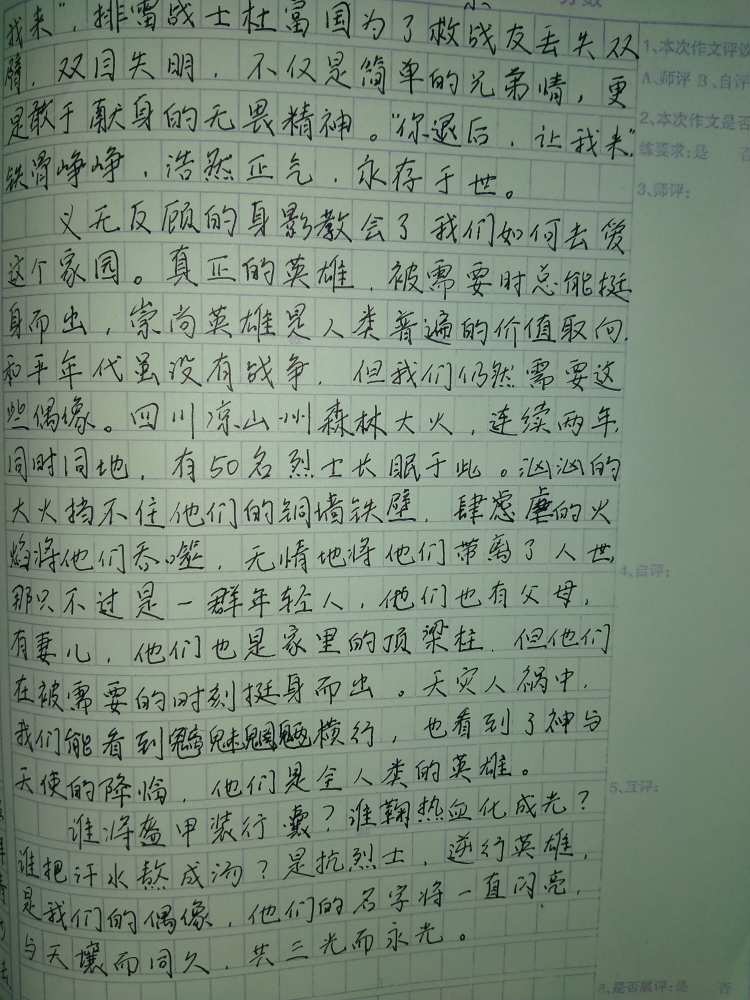 分数
我来”，排雷战士杜富国为了救战友丢失双
1、本次作文评议
臂，双目失明，不仅是简单的兄弟情，更
A、师评 B、自评
是敢于献身的无畏精神。“你退后，让我来”
2、本次作文是否
铁骨峥峥，浩然正气，永存于世。
练要求：是 否
3、师评：
义无反顾的身影教会了我们如何去爱
这个家园。真正的英雄，被需要时总能挺
身而出，崇尚英雄是人类普遍的价值取向，
和平年代虽没有战争，但我们仍然需要这
些偶像。四川凉山州森林大火，连续两年，
同时同地，有50名烈士长眠于此。汹汹的
大火挡不住他们的铜墙铁壁，肆虐的火
焰将他们吞噬，无情地将他们带离了人世，
4、自评：
那只不过是一群年轻人，他们也有父母，
有妻儿，他们也是家里的顶梁柱，但他们
在被需要的时刻挺身而出。天灾人祸中，
我们能看到魑魅魍魉横行，也看到了神与
天使的降临，他们是全人类的英雄。
5、互评：
谁将盔甲装行囊？谁鞠热血化成光？
谁把汗水熬成汤？是抗烈士，逆行英雄，
是我们的偶像，他们的名字将一直闪亮，
与天壤而同久，共三光而永光。
是否展评：是 否